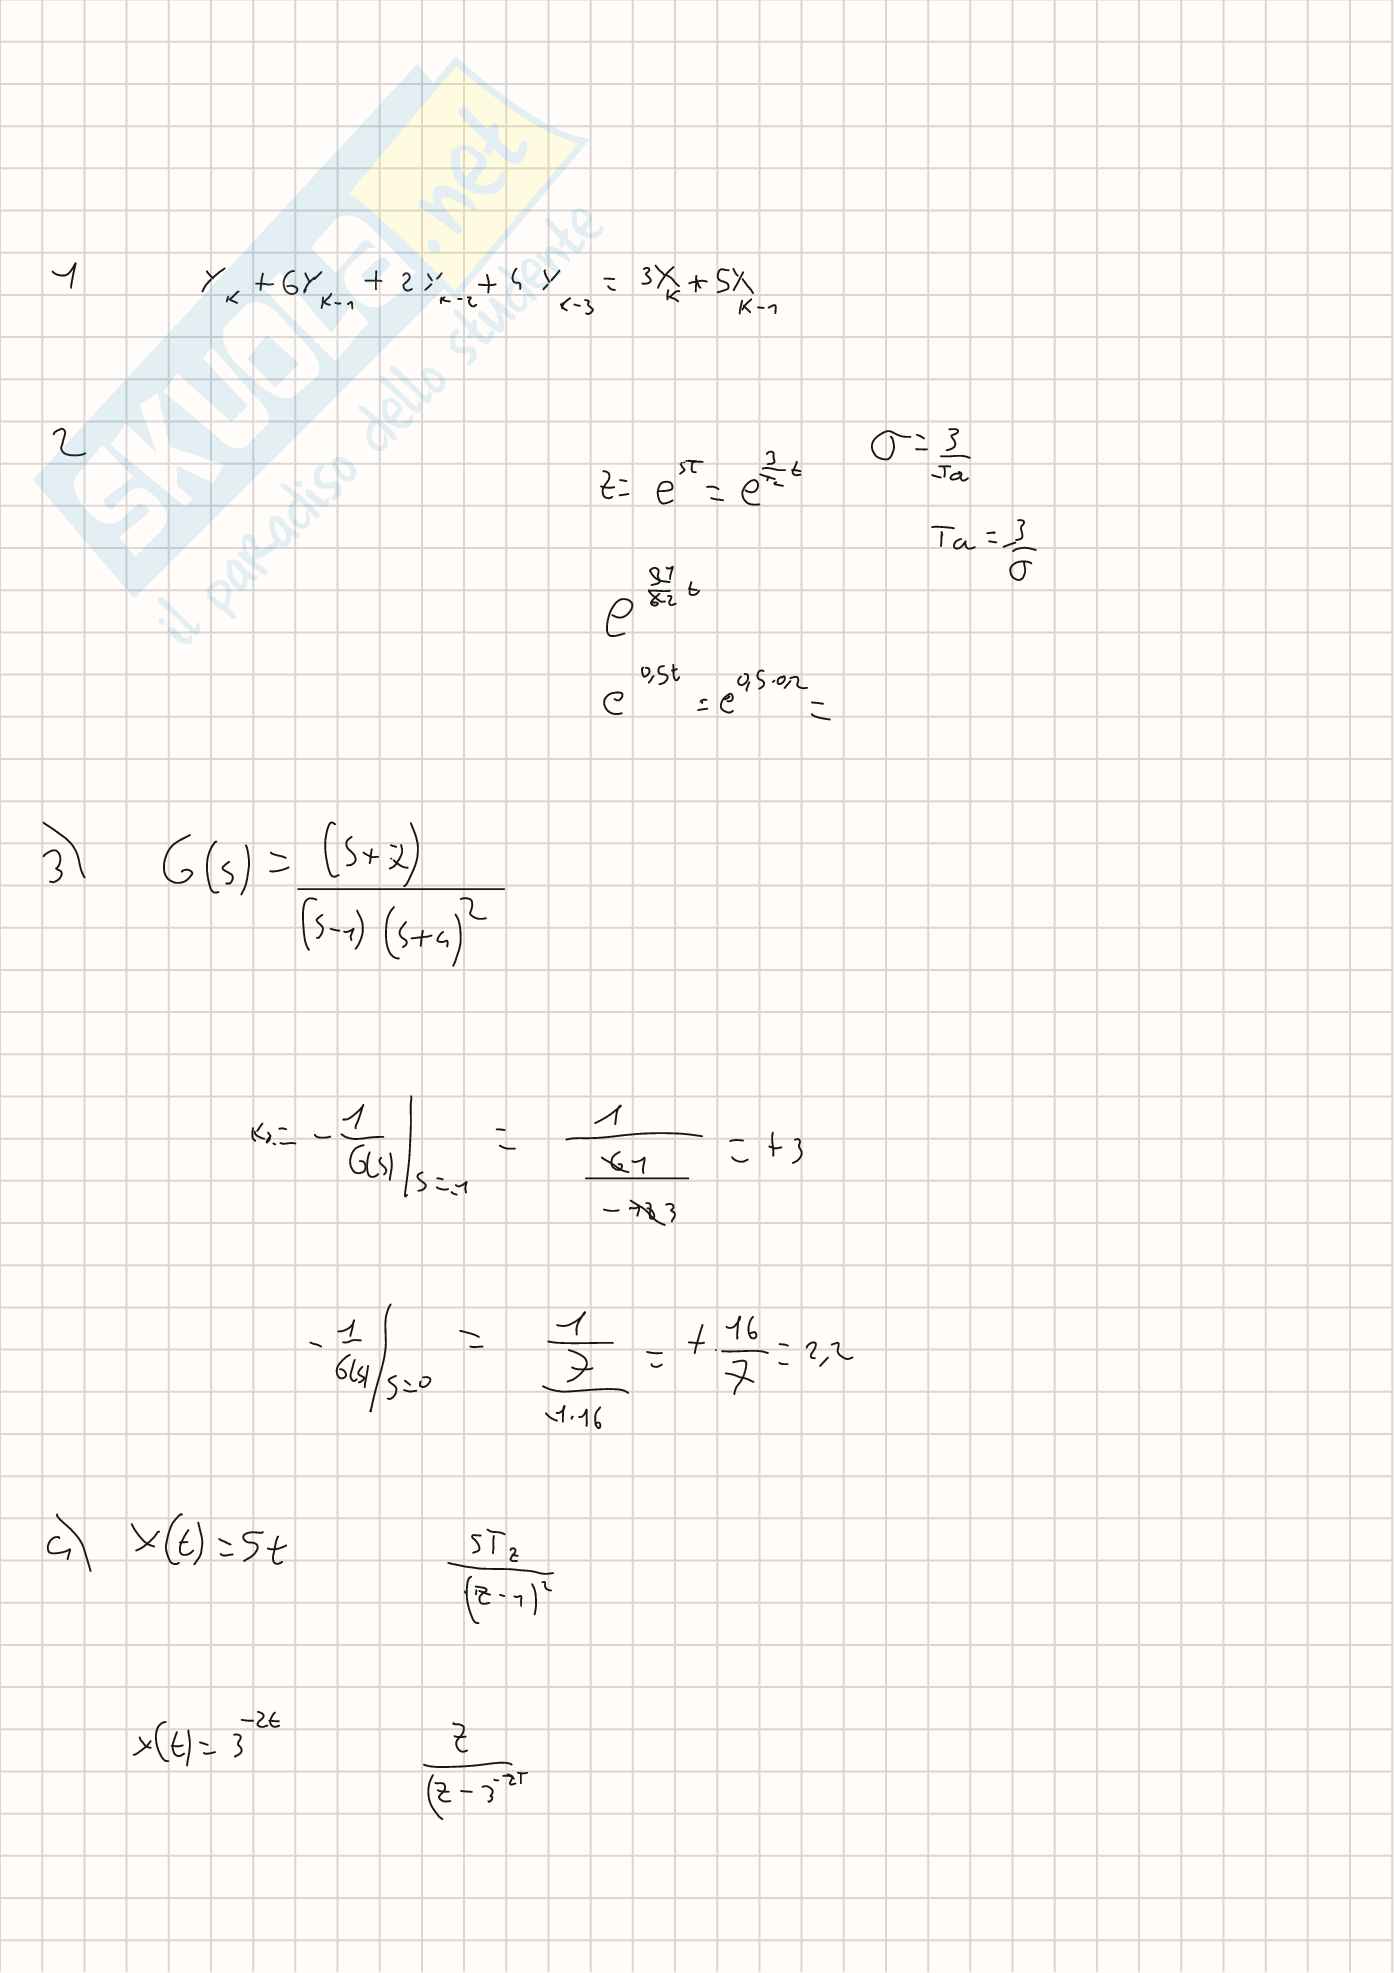 SKUOLA.net
il paradiso dello studente
1 Y_K + 6Y_{K-1} + 2Y_{K-2} + 4Y_{K-3} = 3X_K + 5X_{K-1}
2 z = e^{sT} = e^{\frac{3}{Ta} t} σ = \frac{3}{Ta}
Ta = \frac{3}{σ}
e^{\frac{1}{2} t}
e^{0,5t} = e^{0,5·0,2} =
3) G(s) = \frac{(s+7)}{(s-1)(s+4)^2}
= -\frac{1}{G(s)}|_{s=-1} = \frac{1}{\frac{1}{-3}} = +3
-\frac{1}{G(s)}|_{s=0} = \frac{1}{\frac{7}{-1·16}} = +\frac{16}{7} = 2,2
4) x(t) = 5t \frac{5Tz}{(z-1)^2}
x(t) = 3^{-2t} \frac{z}{(z-3^{-2T}}